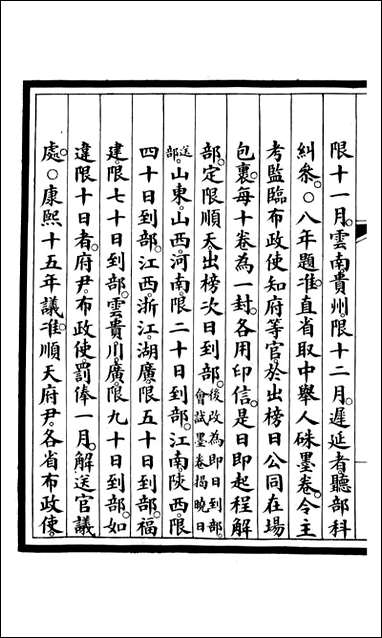 限十一月。雲南貴州。限十二月。遲延者。聽部科
糾參。○八年題准。直省取中舉人硃墨卷。令主
考監臨布政使知府等官。於出榜日公同在場
包裹。每十卷為一封。各用印信。是日即起程解
部。定限順天。出榜次日到部。後改為即日到部。會試墨卷揭曉日
送部。山東。山西。河南。限二十日到部。江南。陝西。限
四十日到部。江西。浙江。湖廣。限五十日到部。福
建。限七十日到部。雲貴川廣。限九十日到部。如
違限十日者。府尹。布政使。罰俸一月。解送官議
處。○康熙十五年議准。順天府尹。各省布政使。